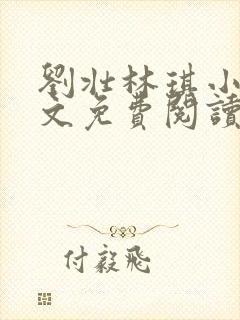 劉壯林琪小
文免費閱讀
付毅飛